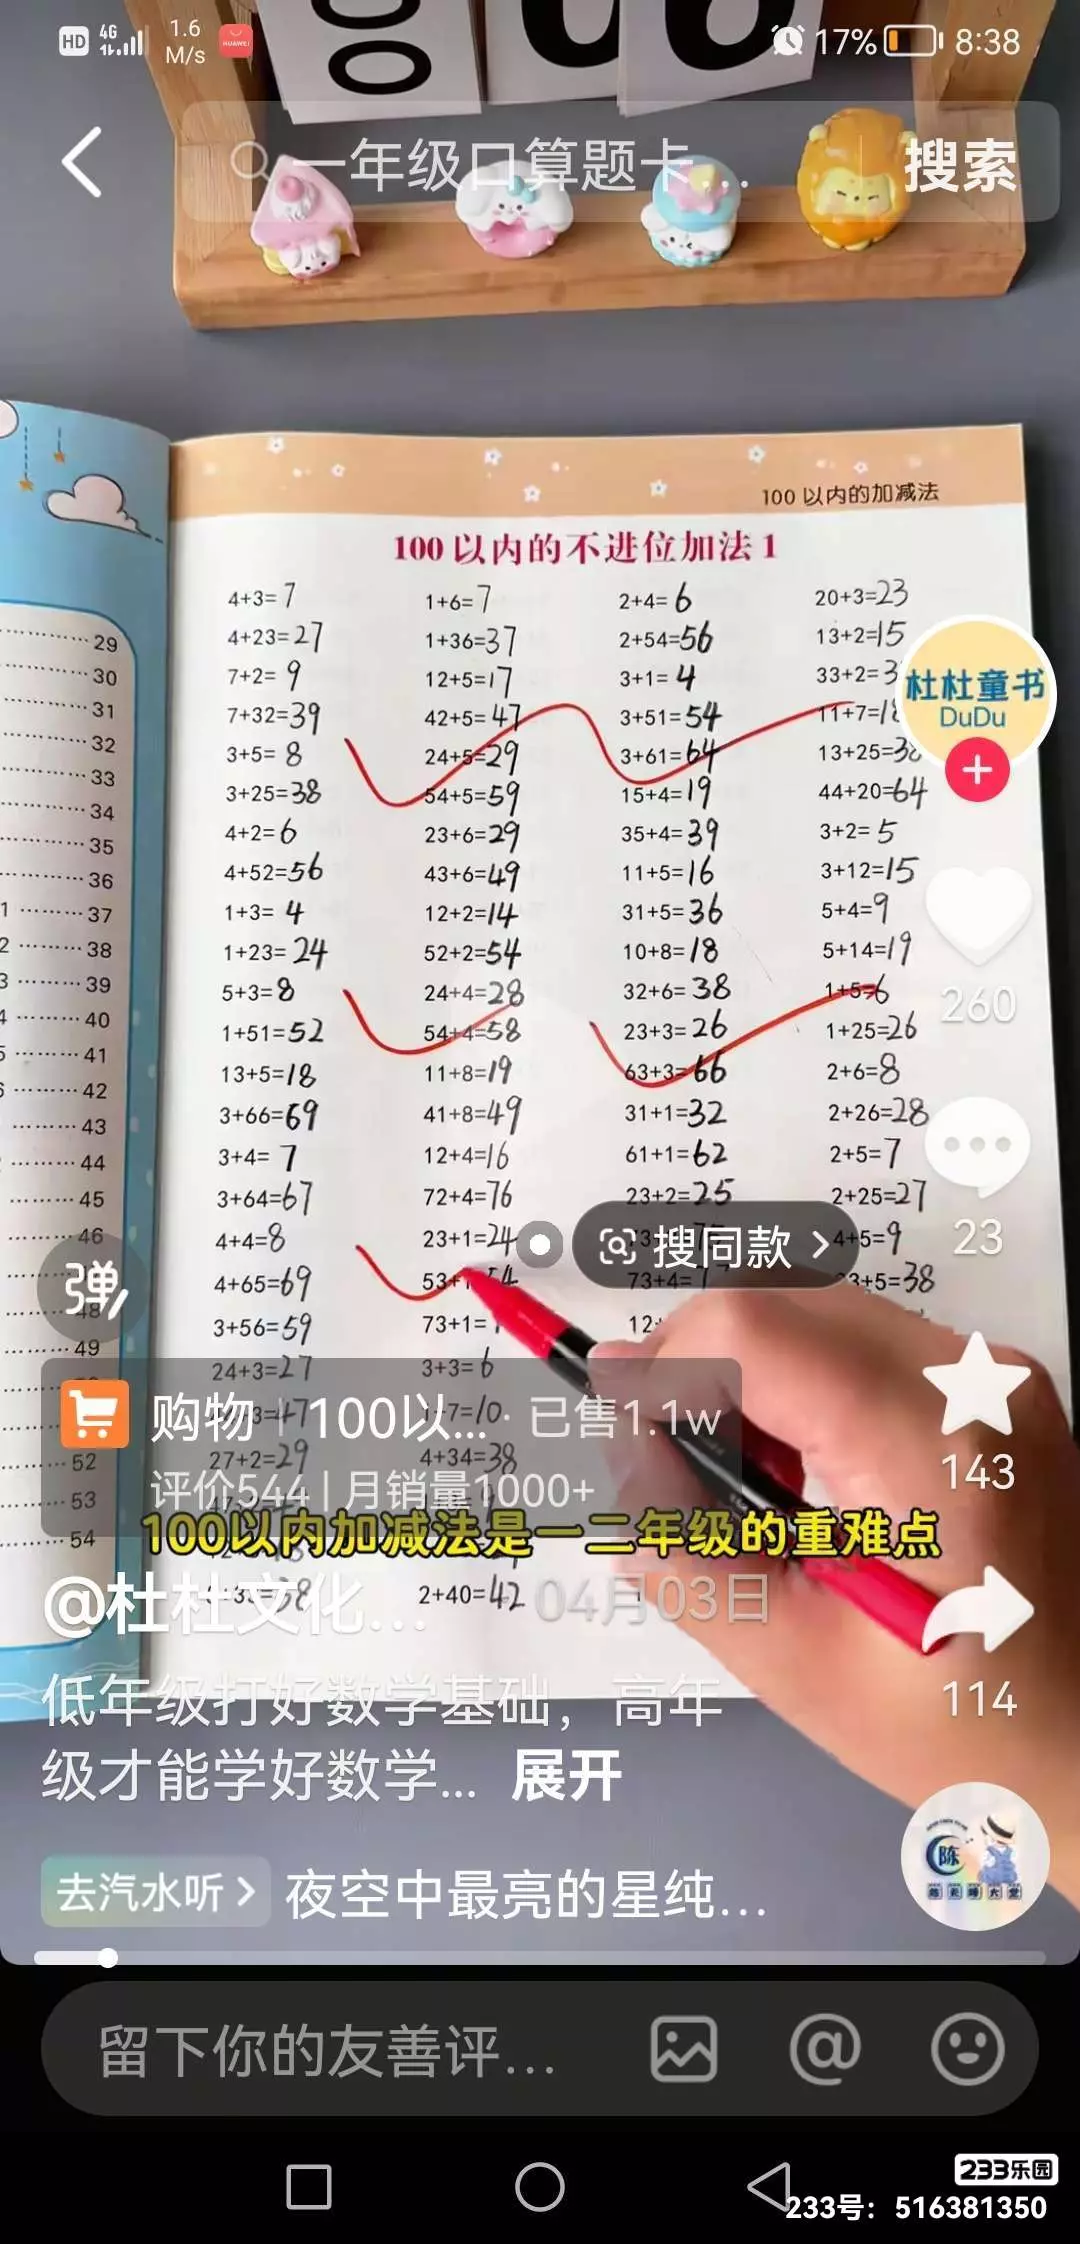 HD 4G 1.6 M/s HUAWEI 17% 8:38
一年级口算题卡... 搜索
100以内的加减法
100以内的不进位加法1
4+3=7 1+6=7 2+4=6 20+3=23
4+23=27 1+36=37 2+54=56 13+2=15
7+2=9 12+5=17 3+1=4 33+2=3
7+32=39 42+5=47 3+51=54 11+7=18
3+5=8 24+5=29 3+61=64 13+25=38
3+25=38 54+5=59 15+4=19 44+20=64
4+2=6 23+6=29 35+4=39 3+2=5
4+52=56 43+6=49 11+5=16 3+12=15
1+3=4 12+2=14 31+5=36 5+4=9
1+23=24 52+2=54 10+8=18 5+14=19
5+3=8 24+4=28 32+6=38 1+5=6
1+51=52 54+4=58 23+3=26 1+25=26
13+5=18 11+8=19 63+3=66 2+6=8
3+66=69 41+8=49 31+1=32 2+26=28
3+4=7 12+4=16 61+1=62 2+5=7
3+64=67 72+4=76 23+2=25 2+25=27
4+4=8 23+1=24 4+5=9
4+65=69 53+1 54 73+4= 3+5=38
3+56=59 73+1= 12
24+3=27 3+3=6
3=47 7=10
27+2=29 4+34=38
2+40=42
29
30
31
32
33
34
35
36
37
38
39
40
41
42
43
44
45
46
48
49
52
53
54
杜杜童书
DuDu
260
23
143
114
搜同款
弹
购物 100以... 已售1.1w
评价544 | 月销量1000+
100以内加减法是一二年级的重难点
@杜杜文化... 04月03日
低年级打好数学基础，高年
级才能学好数学... 展开
去汽水听 夜空中最亮的星纯...
陈
留下你的友善评...
233乐园
233号：516381350